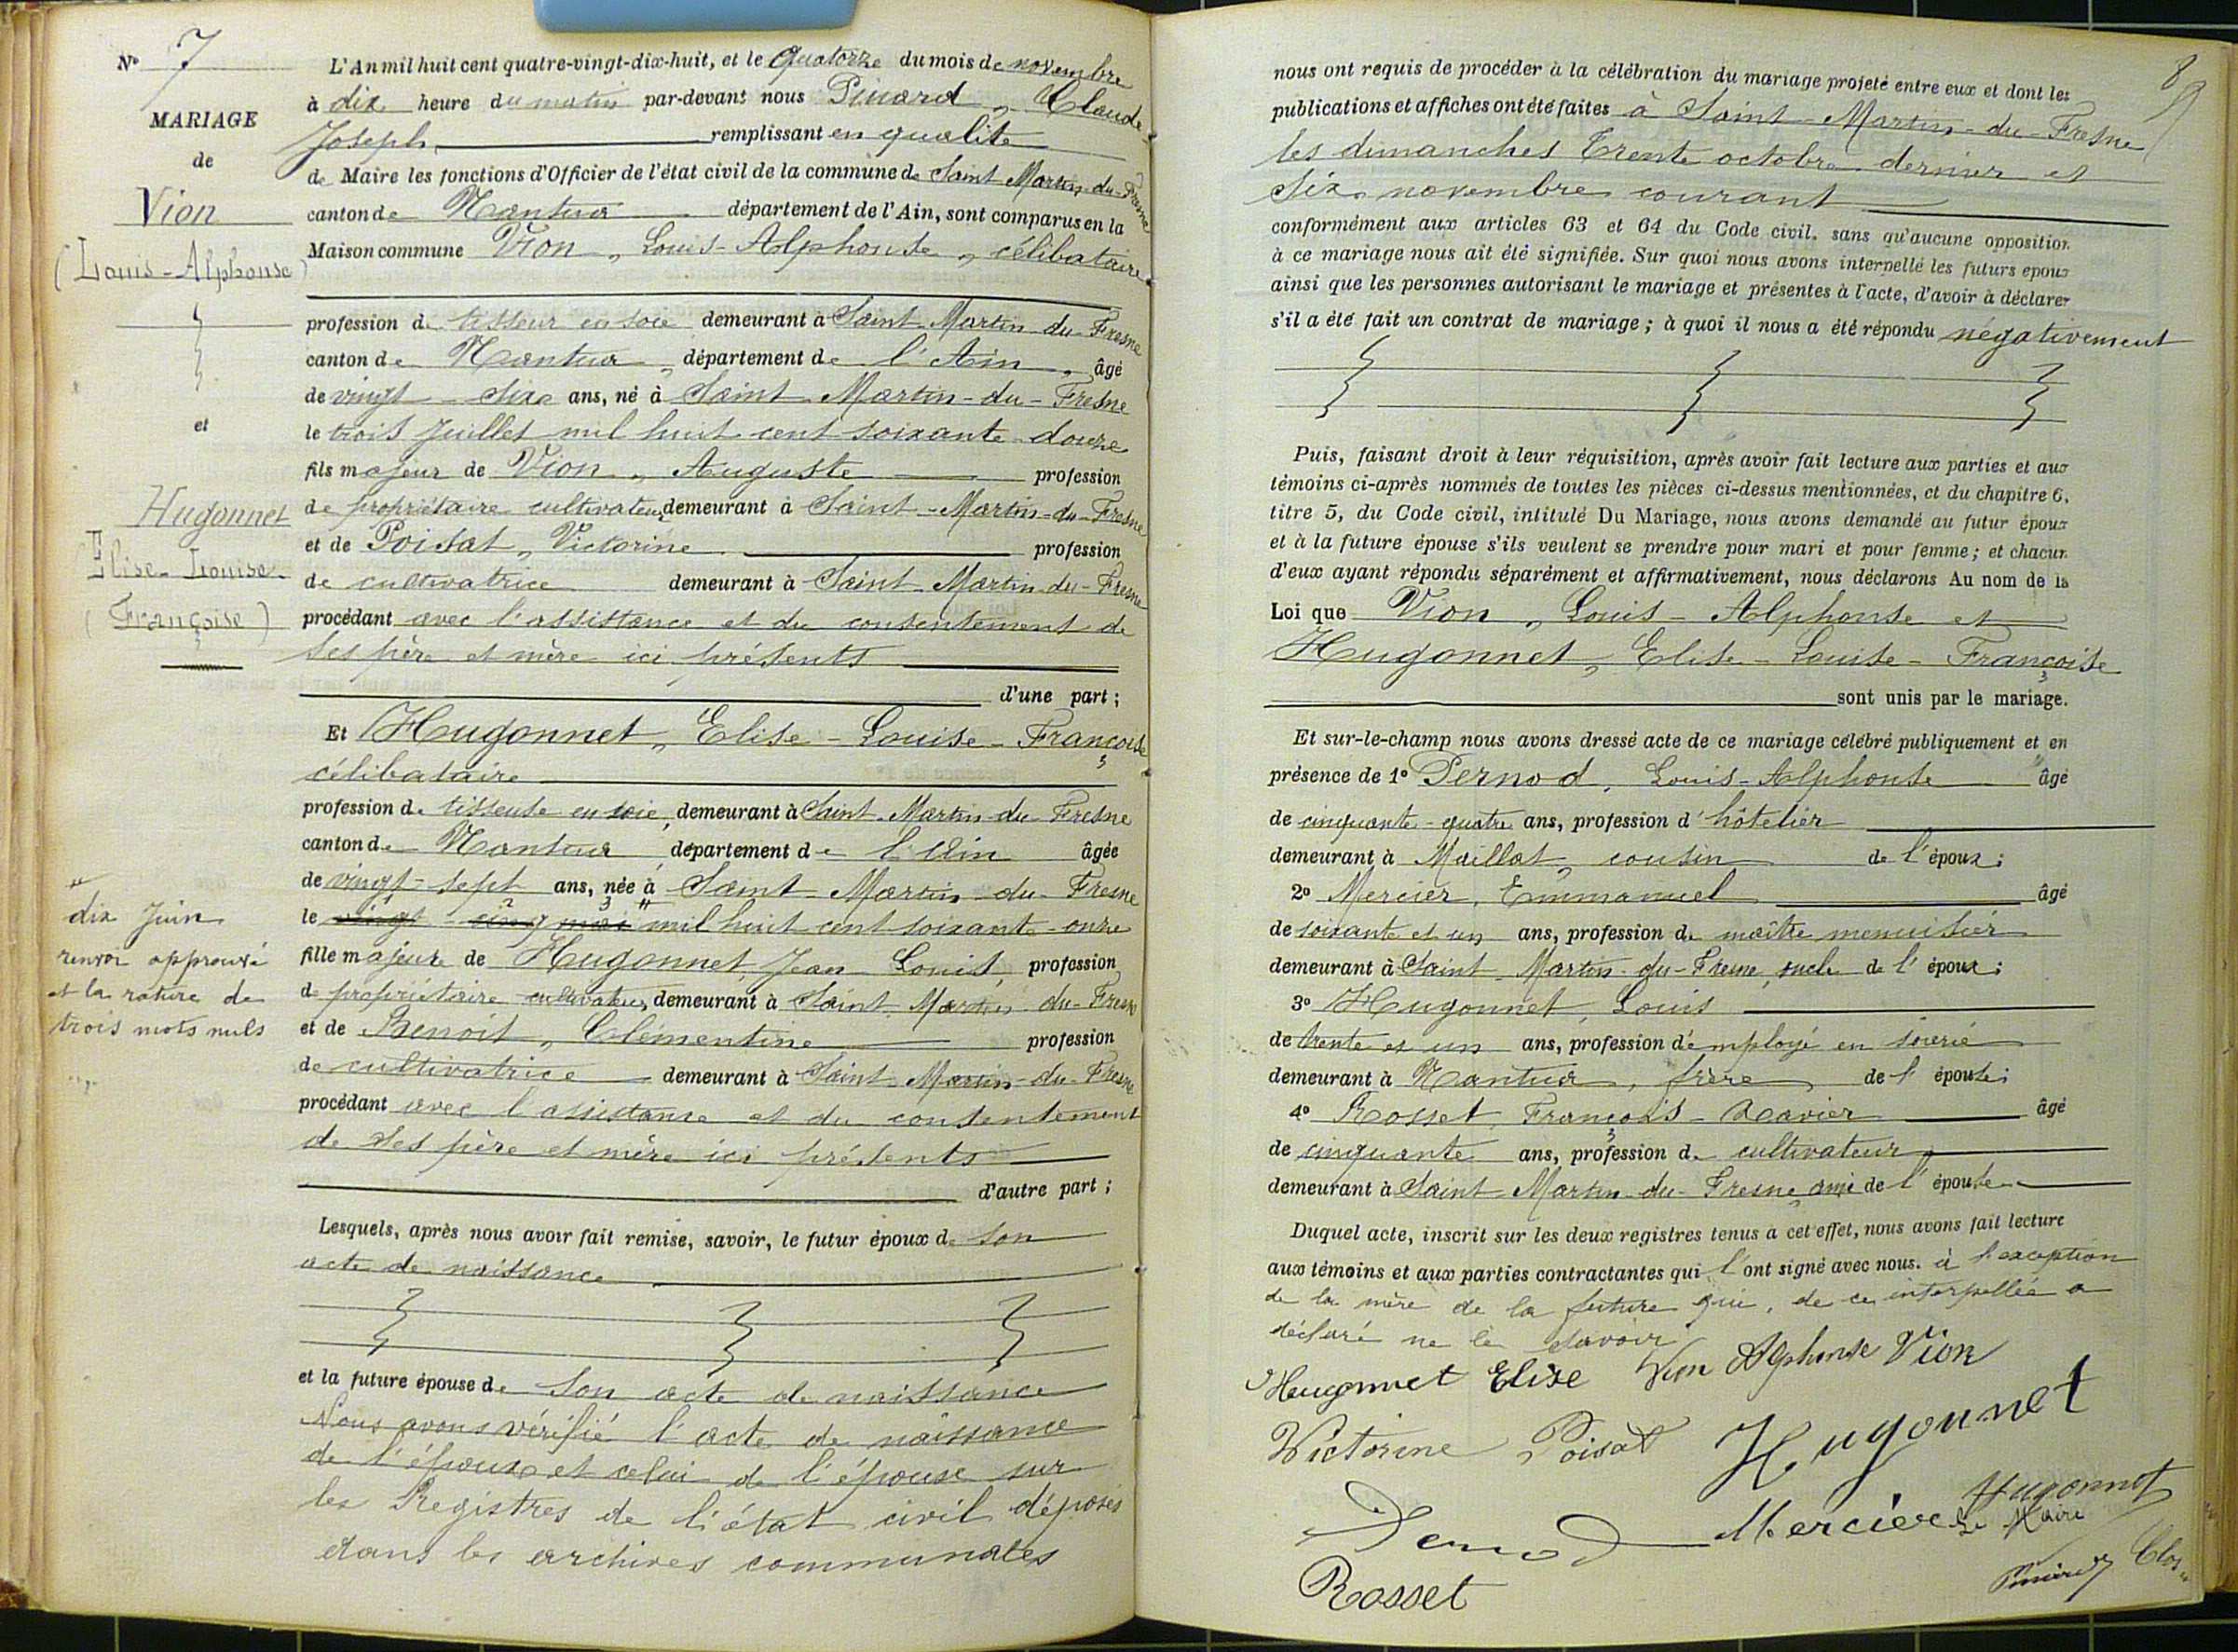 N° 7
MARIAGE
de
Vion
(Louis-Alphonse)
et
Hugonnet
Elise-Louise-
(Françoise)
dix Juin
renvoi approuvé
et la rature de
trois mots nuls
L'An mil huit cent quatre-vingt-dix-huit, et le quatorze du mois de novembre
à dix heure du matin par-devant nous Pinard, Claude
Joseph remplissant en qualité
de Maire les fonctions d'Officier de l'état civil de la commune de Saint Martin-du-Fresne
canton de Nantua département de l'Ain, sont comparus en la
Maison commune Vion, Louis-Alphonse, célibataire
profession de tisseur en soie demeurant à Saint Martin-du-Fresne
canton de Nantua, département de l'Ain, âgé
de vingt-six ans, né à Saint Martin-du-Fresne
le trois Juillet mil huit cent soixante-douze
fils majeur de Vion, Auguste profession
de propriétaire cultivateur, demeurant à Saint-Martin-du-Fresne
et de Poisat, Victorine profession
de cultivatrice demeurant à Saint-Martin-du-Fresne
procédant avec l'assistance et du consentement de
ses père et mère ici présents
d'une part ;
Et Hugonnet, Elise-Louise-Françoise
célibataire
profession de tisseuse en soie, demeurant à Saint-Martin-du-Fresne
canton de Nantua département de l'Ain âgée
de vingt-sept ans, née à Saint-Martin-du-Fresne
le vingt-cinq mai mil huit cent soixante-onze
fille majeure de Hugonnet, Jean Louis, profession
de propriétaire cultivateur, demeurant à Saint Martin-du-Fresne
et de Benoit, Clémentine profession
de cultivatrice demeurant à Saint-Martin-du-Fresne
procédant avec l'assistance et du consentement
de ses père et mère ici présents
d'autre part ;
Lesquels, après nous avoir fait remise, savoir, le futur époux de son
acte de naissance
et la future épouse de son acte de naissance
Nous avons vérifié l'acte de naissance
de l'époux et celui de l'épouse sur
les Registres de l'état civil déposés
dans les archives communales
8
nous ont requis de procéder à la célébration du mariage projeté entre eux et dont les
publications et affiches ont été faites à Saint-Martin-du-Fresne
les dimanches trente octobre dernier et
six novembre courant
conformément aux articles 63 et 64 du Code civil, sans qu'aucune opposition
à ce mariage nous ait été signifiée. Sur quoi nous avons interpellé les futurs epoux
ainsi que les personnes autorisant le mariage et présentes à l'acte, d'avoir à déclarer
s'il a été fait un contrat de mariage ; à quoi il nous a été répondu négativement
Puis, faisant droit à leur réquisition, après avoir fait lecture aux parties et aux
témoins ci-après nommés de toutes les pièces ci-dessus mentionnées, et du chapitre 6,
titre 5, du Code civil, intitulé Du Mariage, nous avons demandé au futur époux
et à la future épouse s'ils veulent se prendre pour mari et pour femme ; et chacun
d'eux ayant répondu séparément et affirmativement, nous déclarons Au nom de la
Loi que Vion, Louis-Alphonse et
Hugonnet, Elise-Louise-Françoise
sont unis par le mariage.
Et sur-le-champ nous avons dressé acte de ce mariage célébré publiquement et en
présence de 1° Pernod, Louis-Alphonse âgé
de cinquante-quatre ans, profession d'hôtelier
demeurant à Maillat, cousin de l'époux ;
2° Mercier, Emmanuel âgé
de soixante et un ans, profession de maître menuisier
demeurant à Saint Martin-du-Fresne, oncle de l'époux ;
3° Hugonnet, Louis
de trente et un ans, profession d'employé en soierie
demeurant à Nantua, frère de l'épouse ;
4° Rosset, François-Xavier âgé
de cinquante ans, profession de cultivateur
demeurant à Saint-Martin-du-Fresne, ami de l'épouse
Duquel acte, inscrit sur les deux registres tenus à cet effet, nous avons fait lecture
aux témoins et aux parties contractantes qui l'ont signé avec nous. à l'exception
de la mère de la future qui, de ce interpellée a
déclaré ne le savoir
Hugonnet Elise Vion Alphonse Vion
Victorine Poisat Hugonnet
Pernod Mercier Hugonnet
Le Maire
Rosset Pinard Clde